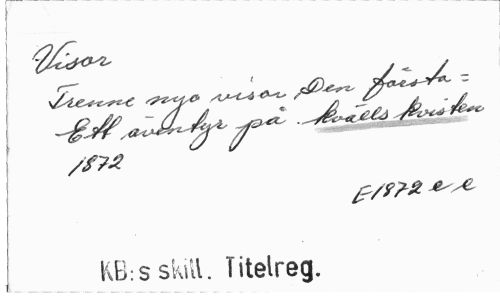 Visor
Trenne nya visor Den första =
Ett äventyr på kvälls kvisten
1872
E1872 e e
KB:s skill. Titelreg.